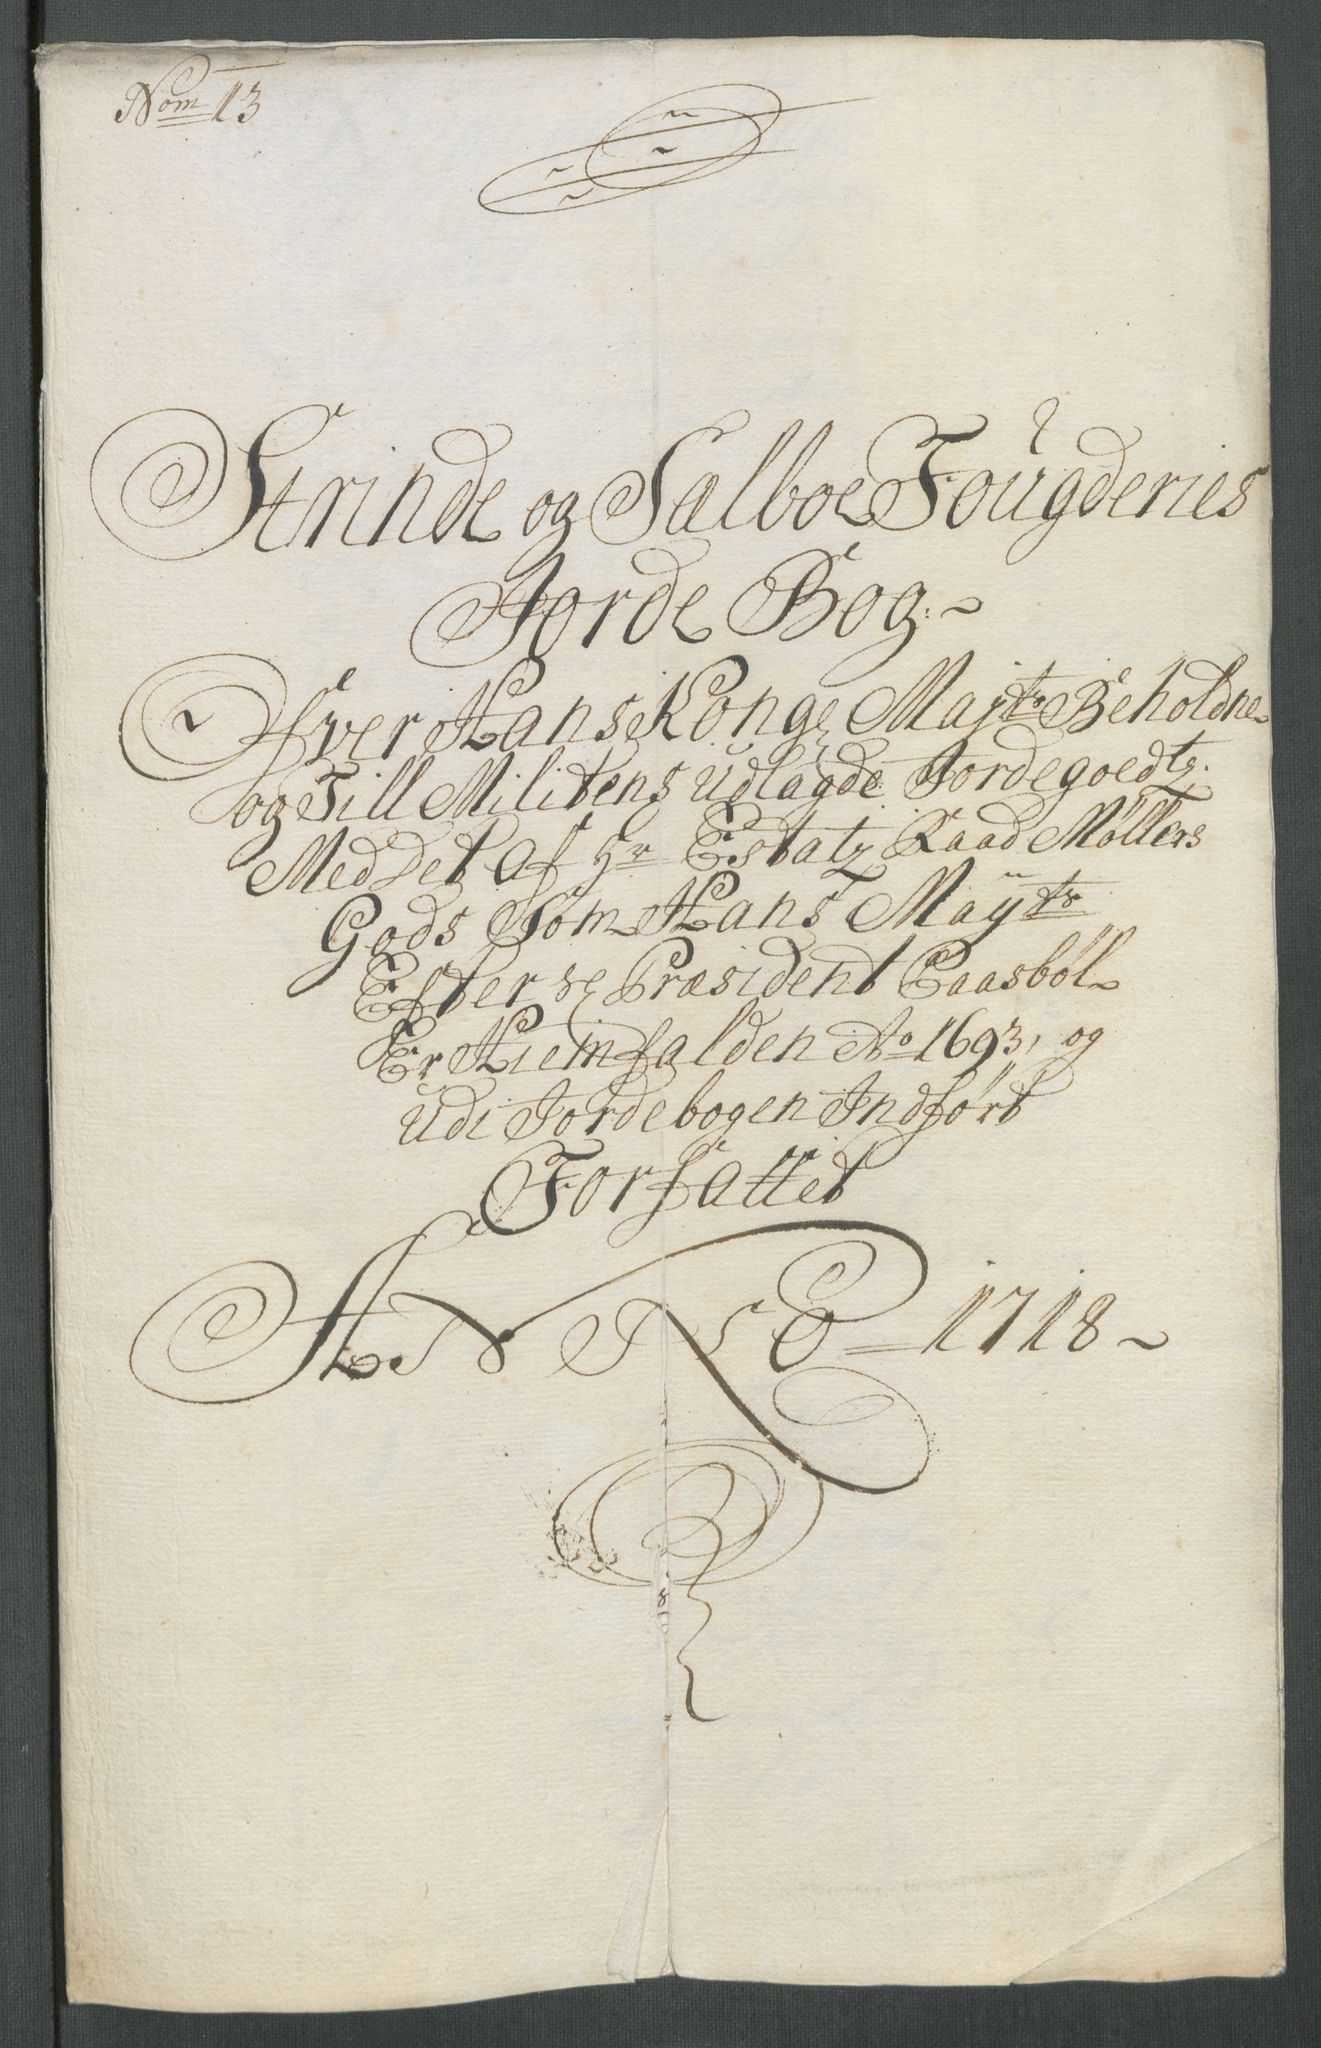 Nom 13
Strinde og Sælboe Fougderies
Jorde Bog
Ofver Hans Konge Mayts Beholdne
og Till Militens Udlagde Jordegoedtz
Med det af Hr Estatz Raad Møllers
Gods Som Hans Mayts
Efter Se Præsident Paasbøl
Er Hiemfalden Ao 1693, og
udi Jordebogen Indført
Forfattet
ANNO 1718